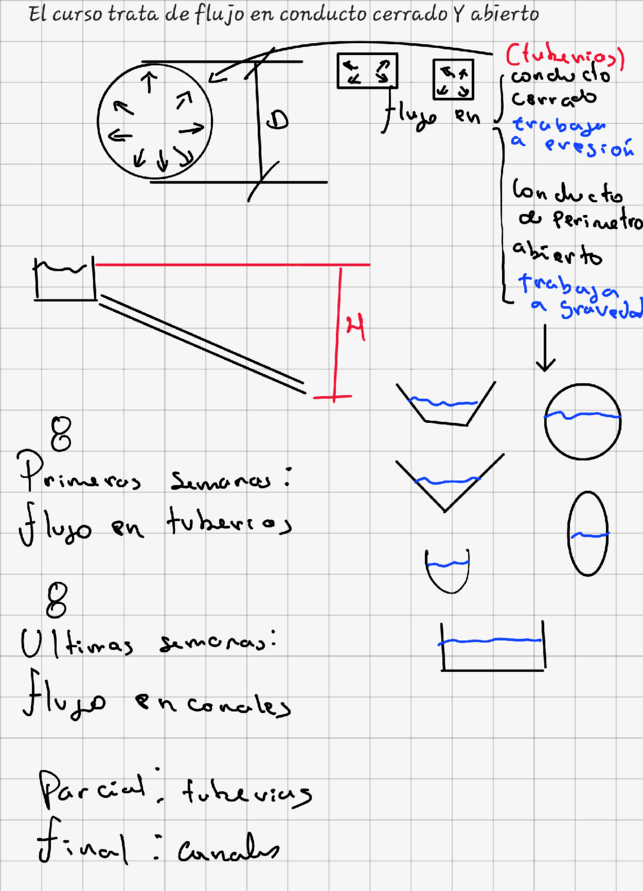 El curso trata de flujo en conducto cerrado Y abierto
D
flujo en
(tuberias)
conducto
cerrado
trabaja
a presión
conducto
de Perimetro
abierto
trabaja
a gravedad
H
8
Primeras semanas:
flujo en tuberias
8
Ultimas semanas:
flujo en canales
Parcial: tuberias
final: canales